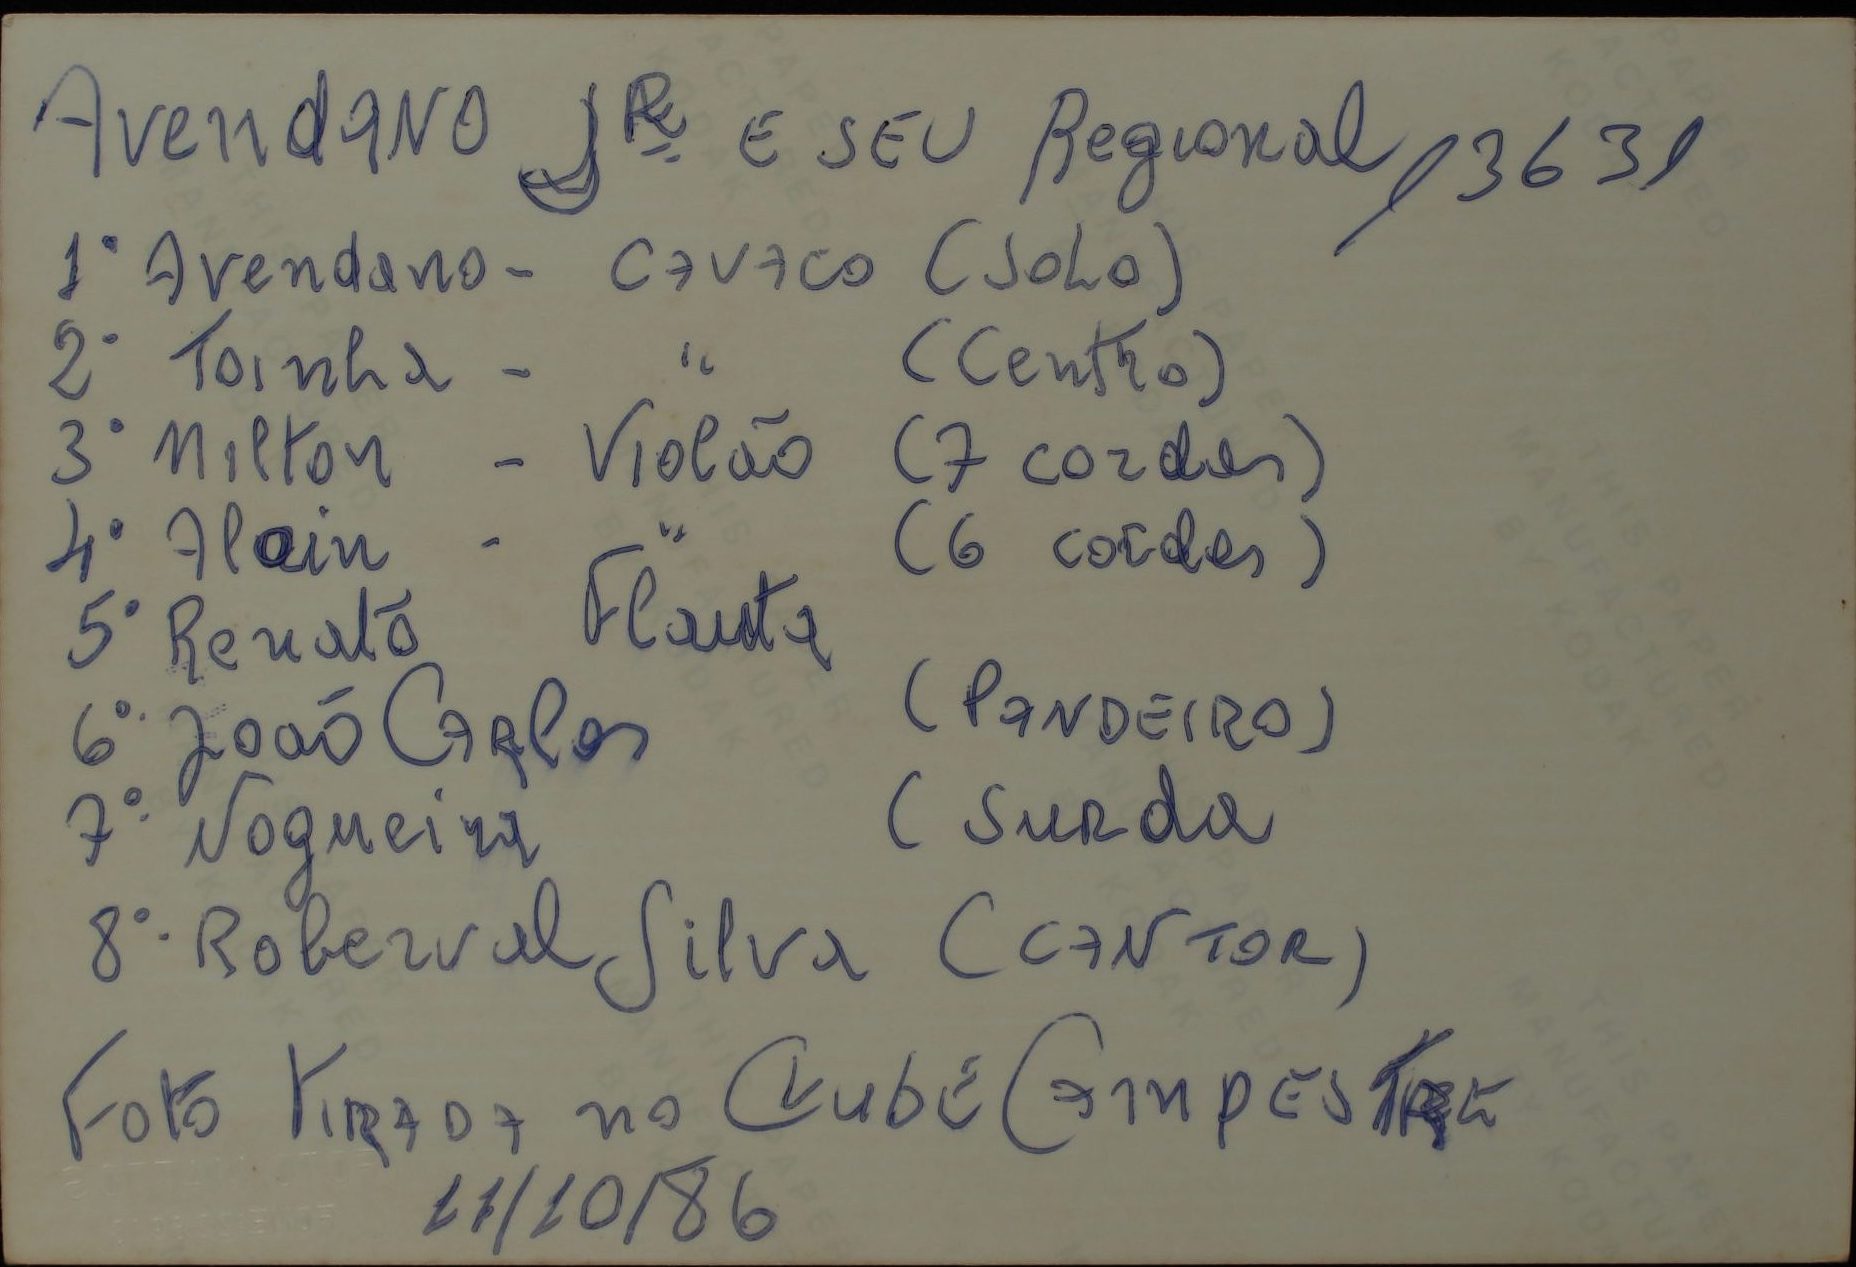 Avendano Jr E SEU Regional, 13631
1º Avendano - CAVACO (SOLO)
2º Toinha - " (Centro)
3º Milton - Violão (7 cordas)
4º Alain - " (6 cordas)
5º Renato Flauta
6º João Carlos (PANDEIRO)
7º Nogueira (Surda
8º Roberval Silva (CANTOR)
Foto TIRADA no Clube CAMPESTRE
11/10/86